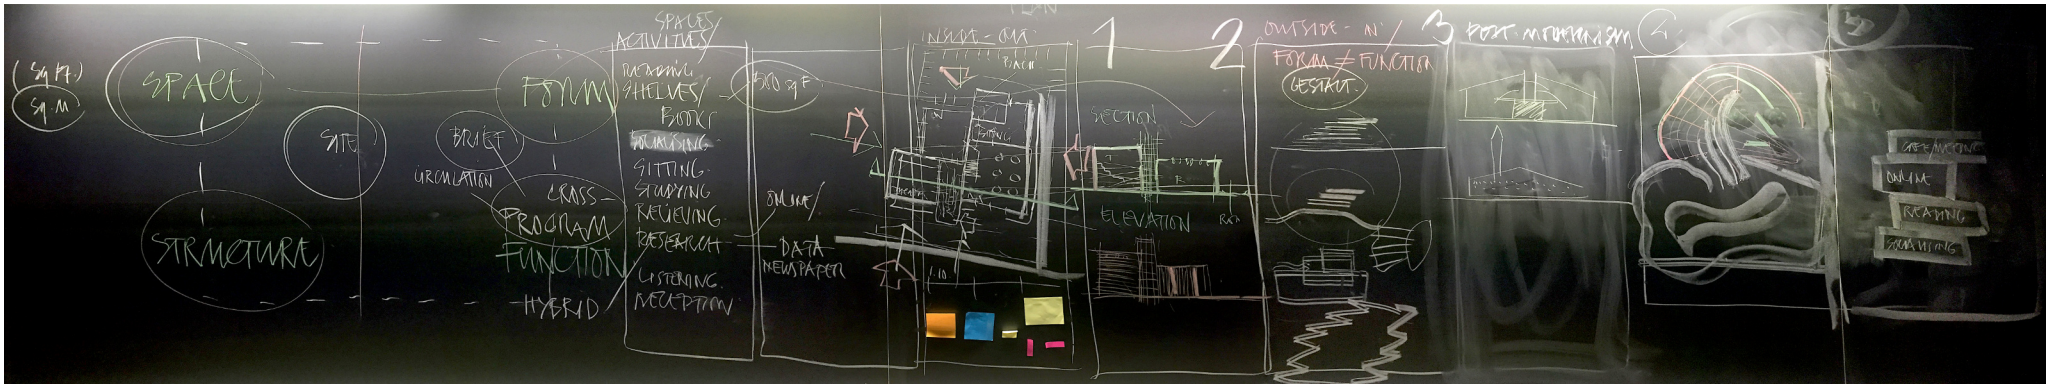 (SQ FT.)
SQ.M
SPACE
SITE
STRUCTURE
FORM
BRIEF
CIRCULATION
CROSS-
PROGRAM
FUNCTION
HYBRID
SPACES/
ACTIVITIES/
READING
SHELVES/
BOOKS
SOCIALISING
SITTING
STUDYING
RELIEVING
RESEARCH
LISTENING
RECEPTION
ONLINE/
DATA
NEWSPAPER
PLAN
INSIDE-OUT
1
SECTION
ELEVATION
2
OUTSIDE-IN/
FORM ≠ FUNCTION
GESTALT
3
POST-MODERNISM
4
5
CAFE/MEETING
ONLINE
READING
SOCIALISING